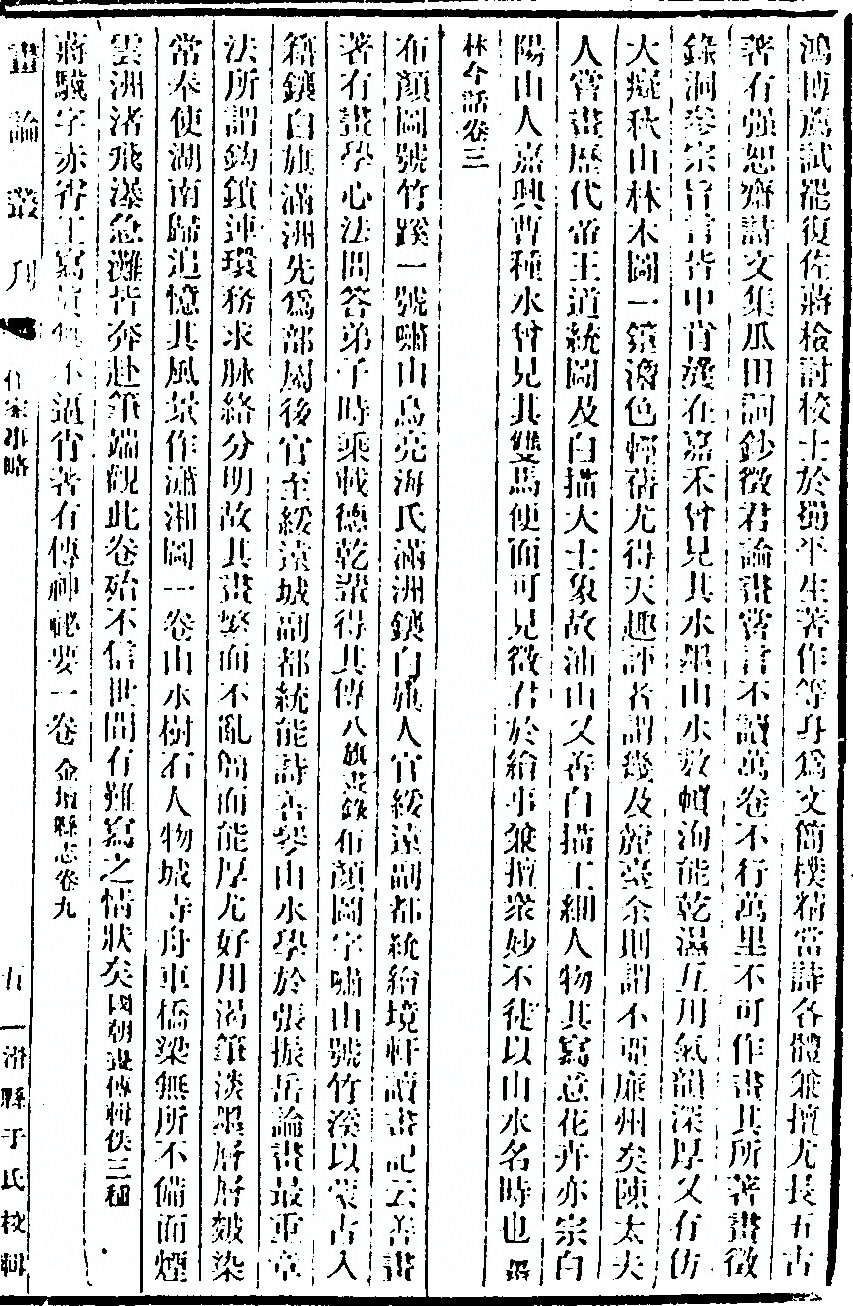 鴻博薦試罷復佐蔣檢討校士於蜀平生著作等身爲文簡樸精當詩各體兼擅尤長五古
著有强恕齋詩文集瓜田詞鈔徵君論畫嘗言不讀萬卷不行萬里不可作畫其所著畫徵
錄洞卷宗旨言皆中肯綮在嘉禾曾見其水墨山水數幀洵能乾濕互用氣韻深厚又有仿
大癡秋山林木圖一鎮淺色輕蒨尤得天趣評者謂幾及麓臺余則謂不亞廉州矣陳太夫
人嘗畫歷代帝王道統圖及白描大士象故浦山又善白描工細人物其寫意花卉亦宗白
陽山人嘉興曹種水曾見其雙馬便面可見徵君於給事兼擅衆妙不徒以山水名時也 墨
林今話卷三
布顏圖號竹蹊一號嘯山烏亮海氏滿洲鑲白旗人官綏遠副都統繪境軒讀畫記云善畫
著有畫學心法問答弟子時乘戴德乾輩得其傳 八旗畫錄 布顏圖字嘯山號竹溪以蒙古入
籍鑲白旗滿洲先爲部屬後官至綏遠城副都統能詩善琴山水學於張振岳論畫最重章
法所謂鈎鎖連環務求脉絡分明故其畫繁而不亂簡而能厚尤好用渴筆淡墨層層皴染
常奉使湖南歸追憶其風景作瀟湘圖一卷山水樹石人物城寺舟車橋梁無所不備而煙
雲洲渚飛瀑急灘皆奔赴筆端觀此卷殆不信世間有難寫之情狀矣 國朝畫傳輯佚三種
蔣驥字赤霄工寫眞無不逼肖著有傳神祕要一卷 金壇縣志卷九
畫論叢刊 作家事略 五 一 濰縣于氏校輯